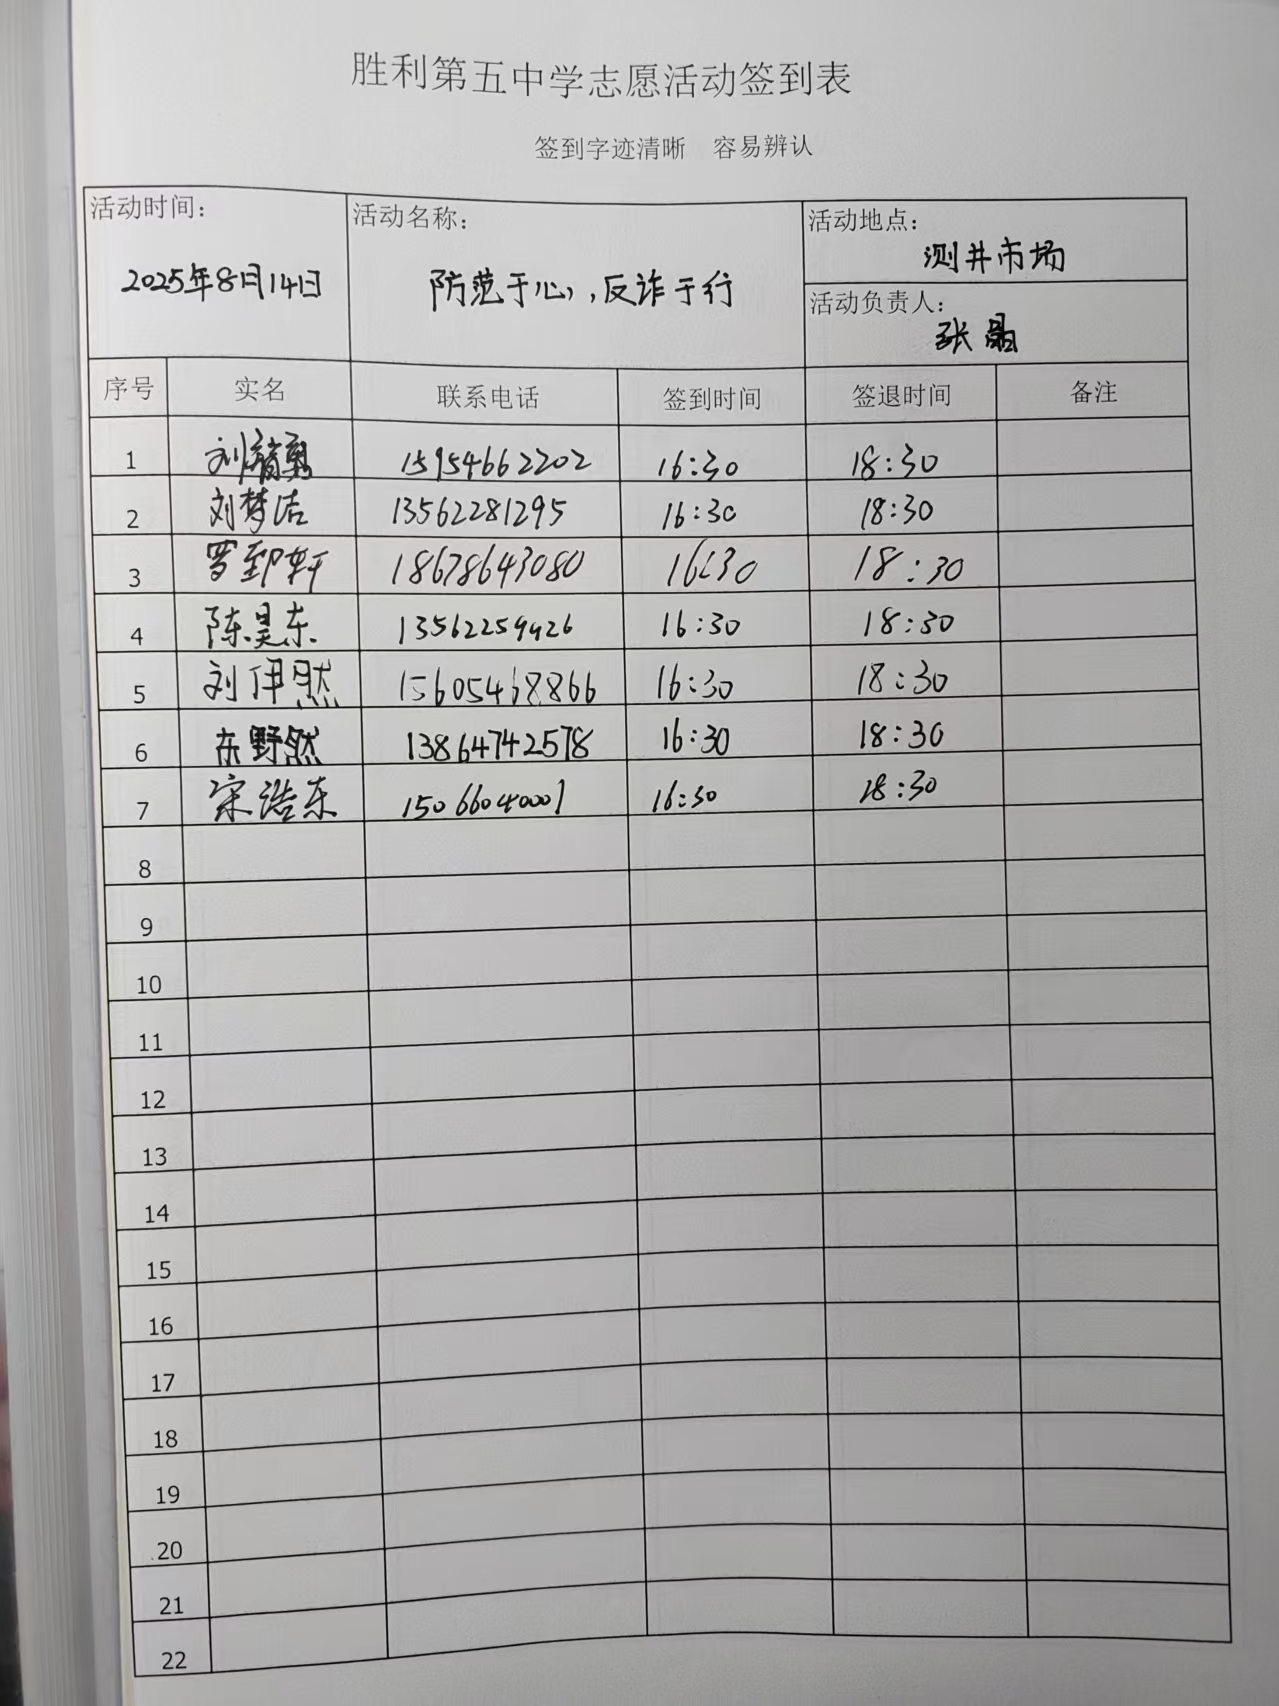 胜利第五中学志愿活动签到表
签到字迹清晰 容易辨认
活动时间: 2025年8月14日
活动名称: 防范于心,反诈于行
活动地点: 测井市场
活动负责人: 张晶
序号 实名 联系电话 签到时间 签退时间 备注
1 刘 勇 15954662202 16:30 18:30
2 刘梦洁 13562281295 16:30 18:30
3 罗郅轩 18678643080 16:30 18:30
4 陈昊东 13562259426 16:30 18:30
5 刘伊然 15605468866 16:30 18:30
6 东野然 13864742578 16:30 18:30
7 宋浩东 15066040001 16:30 18:30
8
9
10
11
12
13
14
15
16
17
18
19
20
21
22